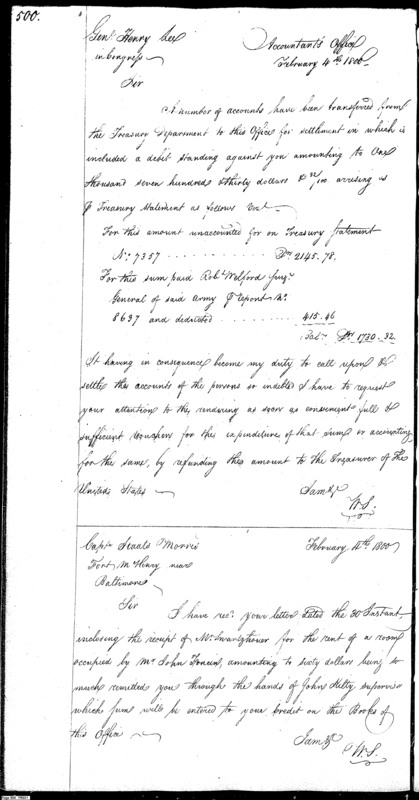 500.
Genl. Henry Lee
in Congress
Accountant's Office
February 4th. 1800.
Sir
A number of accounts have been transferred from
the Treasury Department to this Office for settlement in which is
included a debit standing against you amounting to One
thousand seven hundred & thirty dollars & 32/100 arrising as
P Treasury Statement as follows Vizt.
For this amount unaccounted for on Treasury Statement
No. 7357 . . . . . . . . . . Drs. 2145.78.
For this sum paid Robt. Welford
General of said Army P report No.
8637 and deducted . . . . . . . . 415.46
Balce. Drs. 1730.32.
It having in consequence become my duty to call upon &
settle the accounts of the persons so indebted I have to request
your attention to the rendering as soon as convenient full &
sufficient vouchers for the expenditure of that sum or accounting
for the same, by refunding the amount to the Treasurer of the
United States
I am &c.
W. S.
Capt. Staats Morris
Fort McHenry near
Baltimore
February 4th. 1800
Sir
I have recd. your letter dated the 30 Instant,
inclosing the receipt of Mr. for the rent of a room
occupied by Mr. John amounting to sixty dollars being so
much remitted you through the hands of John Kilty supervisor
which sum will be entered to your credit on the Books of
this Office
I am &c.
W. S.